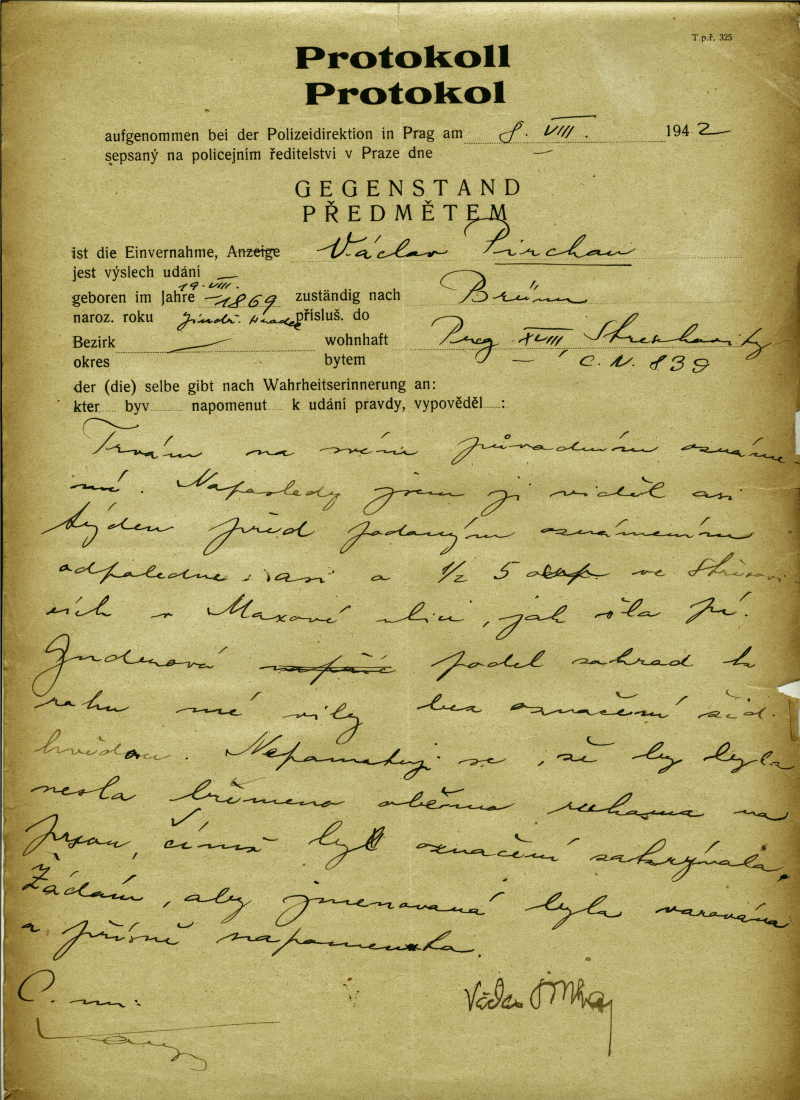 T.p.ř. 325
Protokoll
Protokol
aufgenommen bei der Polizeidirektion in Prag am 8. VIII. 1942
sepsaný na policejním ředitelství v Praze dne —
GEGENSTAND
PŘEDMĚTEM
ist die Einvernahme, Anzeige Václav Pirchan
jest výslech udání —
19. VIII.
geboren im Jahre 1869 zuständig nach Brünn
naroz. roku Jindř. Hradec přísluš. do
Bezirk — wohnhaft Prag XVIII Streschovitz
okres bytem — č. N. 839
der (die) selbe gibt nach Wahrheitserinnerung an:
kter byv napomenut k udání pravdy, vypověděl :
Trvám na svém původním oznáme-
ní. Naposledy jsem ji viděl asi
týden před podaným oznámením
odpoledne asi o ½ 5 ve Střešovi
cích v Maxově ulici, jak šla pí.
podél zahrad k
rohu mé vily bez označení žid.
hvězdou. Nepamatuji se, že by byla
nesla břemeno oběma rukama na
prsou, čímž by označení zakrývala.
Žádám, aby jmenovaná byla varována
a přísně napomenuta.
Václav